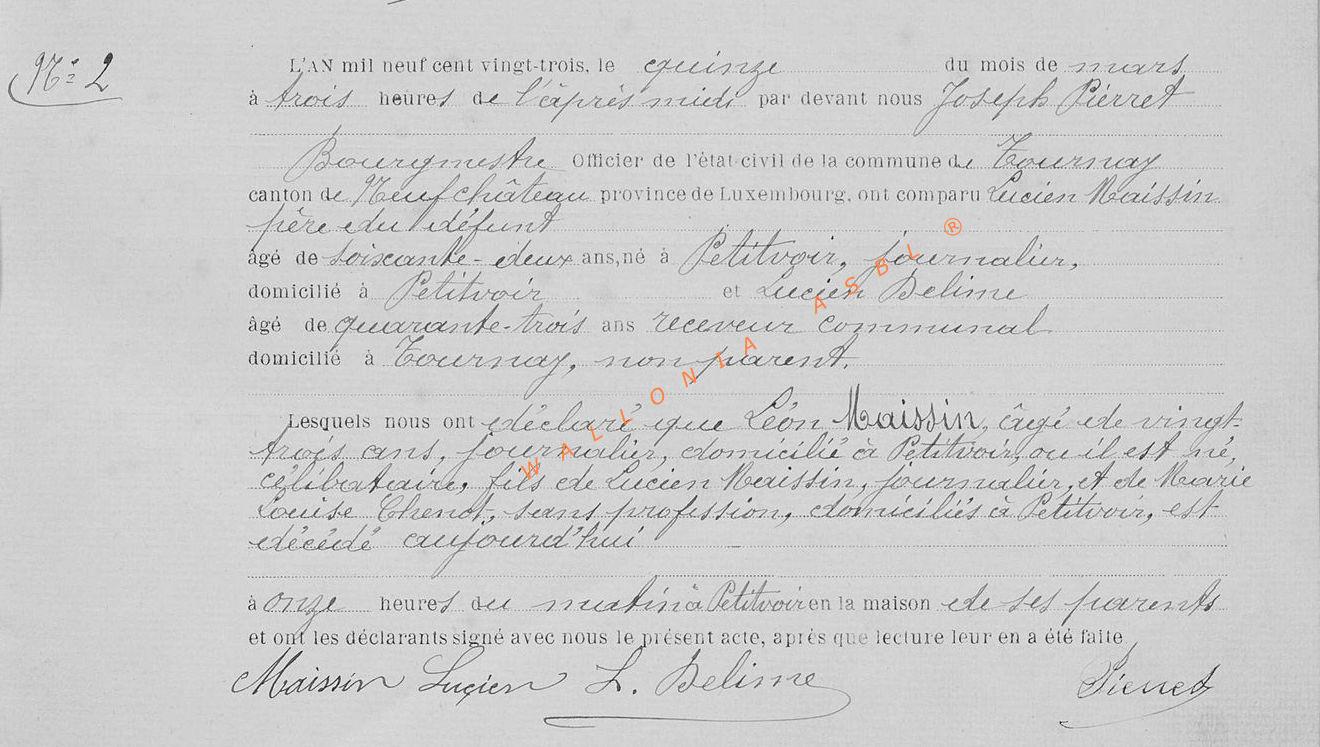 Nº 2
L'AN mil neuf cent vingt-trois, le quinze du mois de mars
à trois heures de l'après midi par devant nous Joseph Pierret
Bourgmestre Officier de l'état-civil de la commune de Tournay
canton de Neufchâteau province de Luxembourg, ont comparu Lucien Maissin
père du défunt
âgé de soixante-deux ans, né à Petitvoir, journalier,
domicilié à Petitvoir et Lucien Belime
âgé de quarante-trois ans receveur communal
domicilié à Tournay, non parent.
Lesquels nous ont déclaré que Léon Maissin, âgé de vingt-
trois ans, journalier, domicilié à Petitvoir, ou il est né,
célibataire, fils de Lucien Maissin, journalier, et de Marie
Louise Chenot, sans profession, domiciliés à Petitvoir, est
décédé aujourd'hui
à onze heures du matin à Petitvoir en la maison de ses parents
et ont les déclarants signé avec nous le présent acte, après que lecture leur en a été faite
Maissin Lucien L. Belime Pierret
WALLONIA ASBL ®